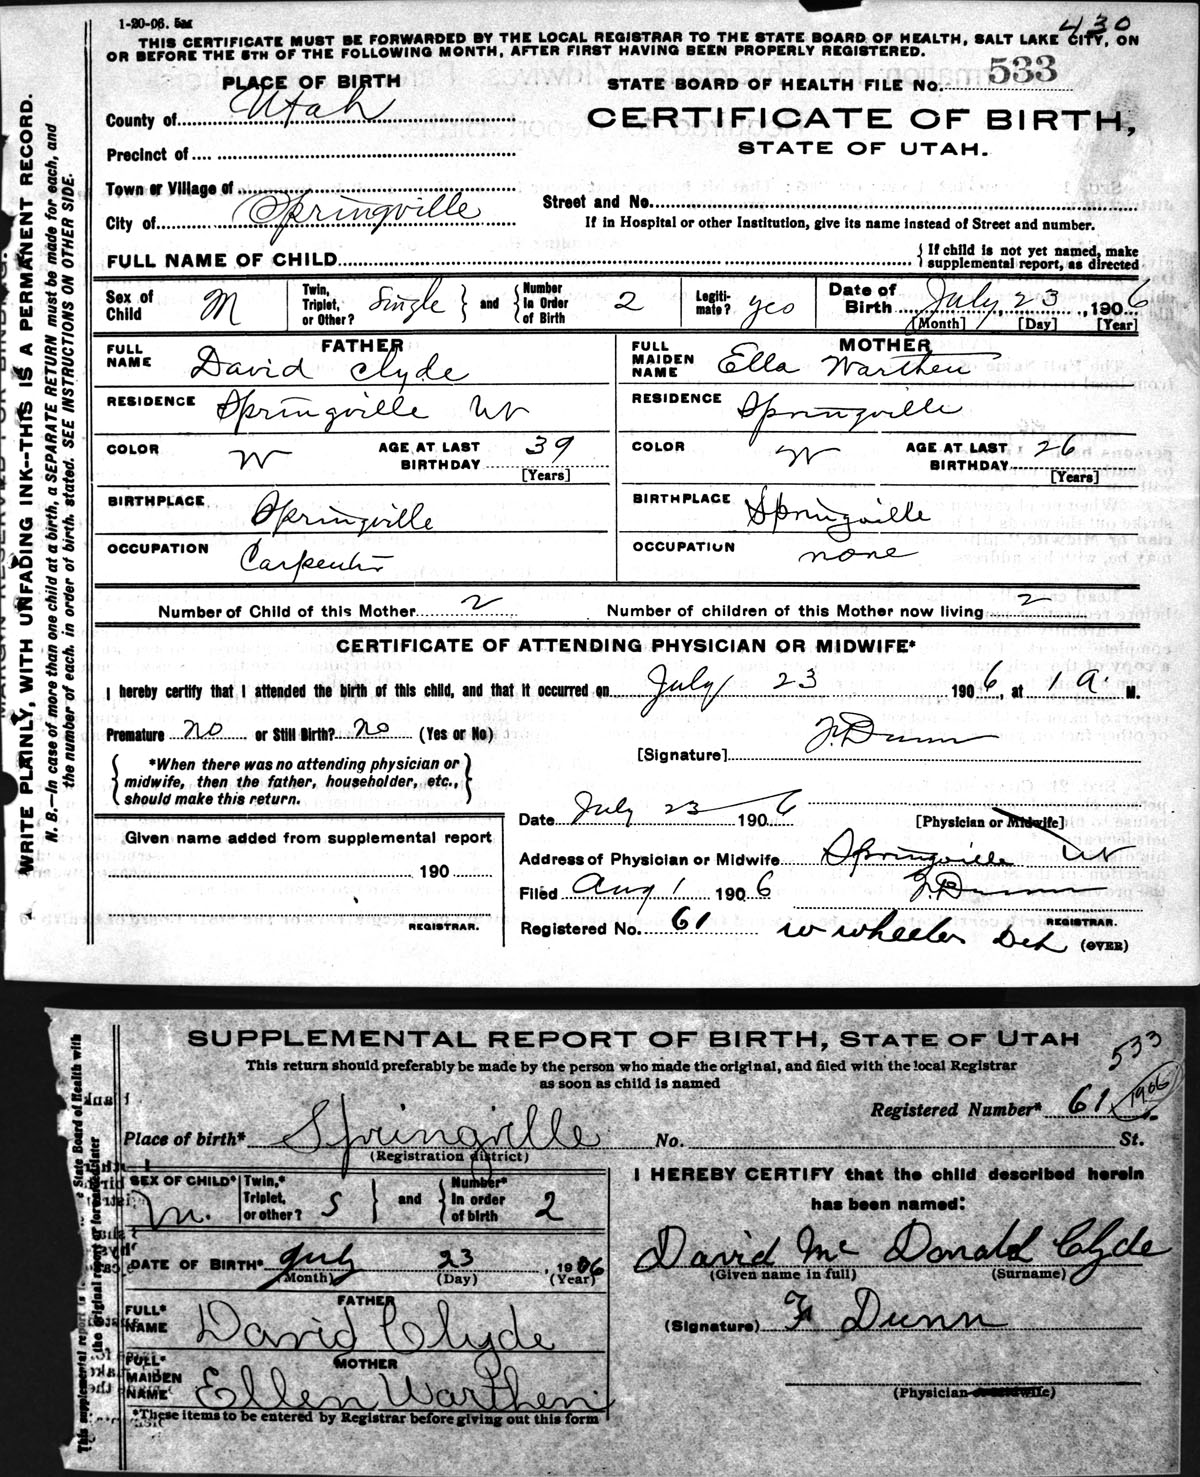 1-20-06. 5M
430
THIS CERTIFICATE MUST BE FORWARDED BY THE LOCAL REGISTRAR TO THE STATE BOARD OF HEALTH, SALT LAKE CITY, ON
OR BEFORE THE 5TH OF THE FOLLOWING MONTH, AFTER FIRST HAVING BEEN PROPERLY REGISTERED.
PLACE OF BIRTH
STATE BOARD OF HEALTH FILE No. 533
County of Utah
CERTIFICATE OF BIRTH,
STATE OF UTAH.
Precinct of
Town or Village of
Street and No.
City of Springville
If in Hospital or other Institution, give its name instead of Street and number.
FULL NAME OF CHILD
If child is not yet named, make
supplemental report, as directed
Sex of Child M
Twin, Triplet, or Other? Single and Number In Order of Birth 2
Legiti-mate? yes
Date of Birth July 23, 1906
[Month] [Day] [Year]
FATHER
FULL NAME David Clyde
RESIDENCE Springville Ut
COLOR W AGE AT LAST BIRTHDAY 39
[Years]
BIRTHPLACE Springville
OCCUPATION Carpenter
MOTHER
FULL MAIDEN NAME Ella Warthen
RESIDENCE Springville
COLOR W AGE AT LAST BIRTHDAY 26
[Years]
BIRTHPLACE Springville
OCCUPATION none
Number of Child of this Mother 2 Number of children of this Mother now living 2
CERTIFICATE OF ATTENDING PHYSICIAN OR MIDWIFE*
I hereby certify that I attended the birth of this child, and that it occurred on July 23 1906, at 1 A. M.
Premature no or Still Birth? no (Yes or No)
[Signature] F. Dunn
*When there was no attending physician or
midwife, then the father, householder, etc.,
should make this return.
Date July 23 1906
[Physician or Midwife]
Given name added from supplemental report
190
REGISTRAR.
Address of Physician or Midwife Springville Ut
Filed Aug 1 1906 F. Dunn
REGISTRAR.
Registered No. 61 W Wheeler Dep
(OVER)
WRITE PLAINLY, WITH UNFADING INK--THIS IS A PERMANENT RECORD.
N. B.—In case of more than one child at a birth, a SEPARATE RETURN must be made for each, and
the number of each, in order of birth, stated. SEE INSTRUCTIONS ON OTHER SIDE.
SUPPLEMENTAL REPORT OF BIRTH, STATE OF UTAH
533
This return should preferably be made by the person who made the original, and filed with the local Registrar
as soon as child is named
Registered Number* 61 1906
Place of birth* Springville No. St.
(Registration district)
SEX OF CHILD* M.
Twin,* Triplet, or other? S and Number* In order of birth 2
DATE OF BIRTH* July 23, 1906
(Month) (Day) (Year)
FATHER
FULL* NAME David Clyde
MOTHER
FULL* MAIDEN NAME Ellen Warthen
*These items to be entered by Registrar before giving out this form
I HEREBY CERTIFY that the child described herein
has been named:
David Mc Donald Clyde
(Given name in full) (Surname)
(Signature) F Dunn
(Physician or Midwife)